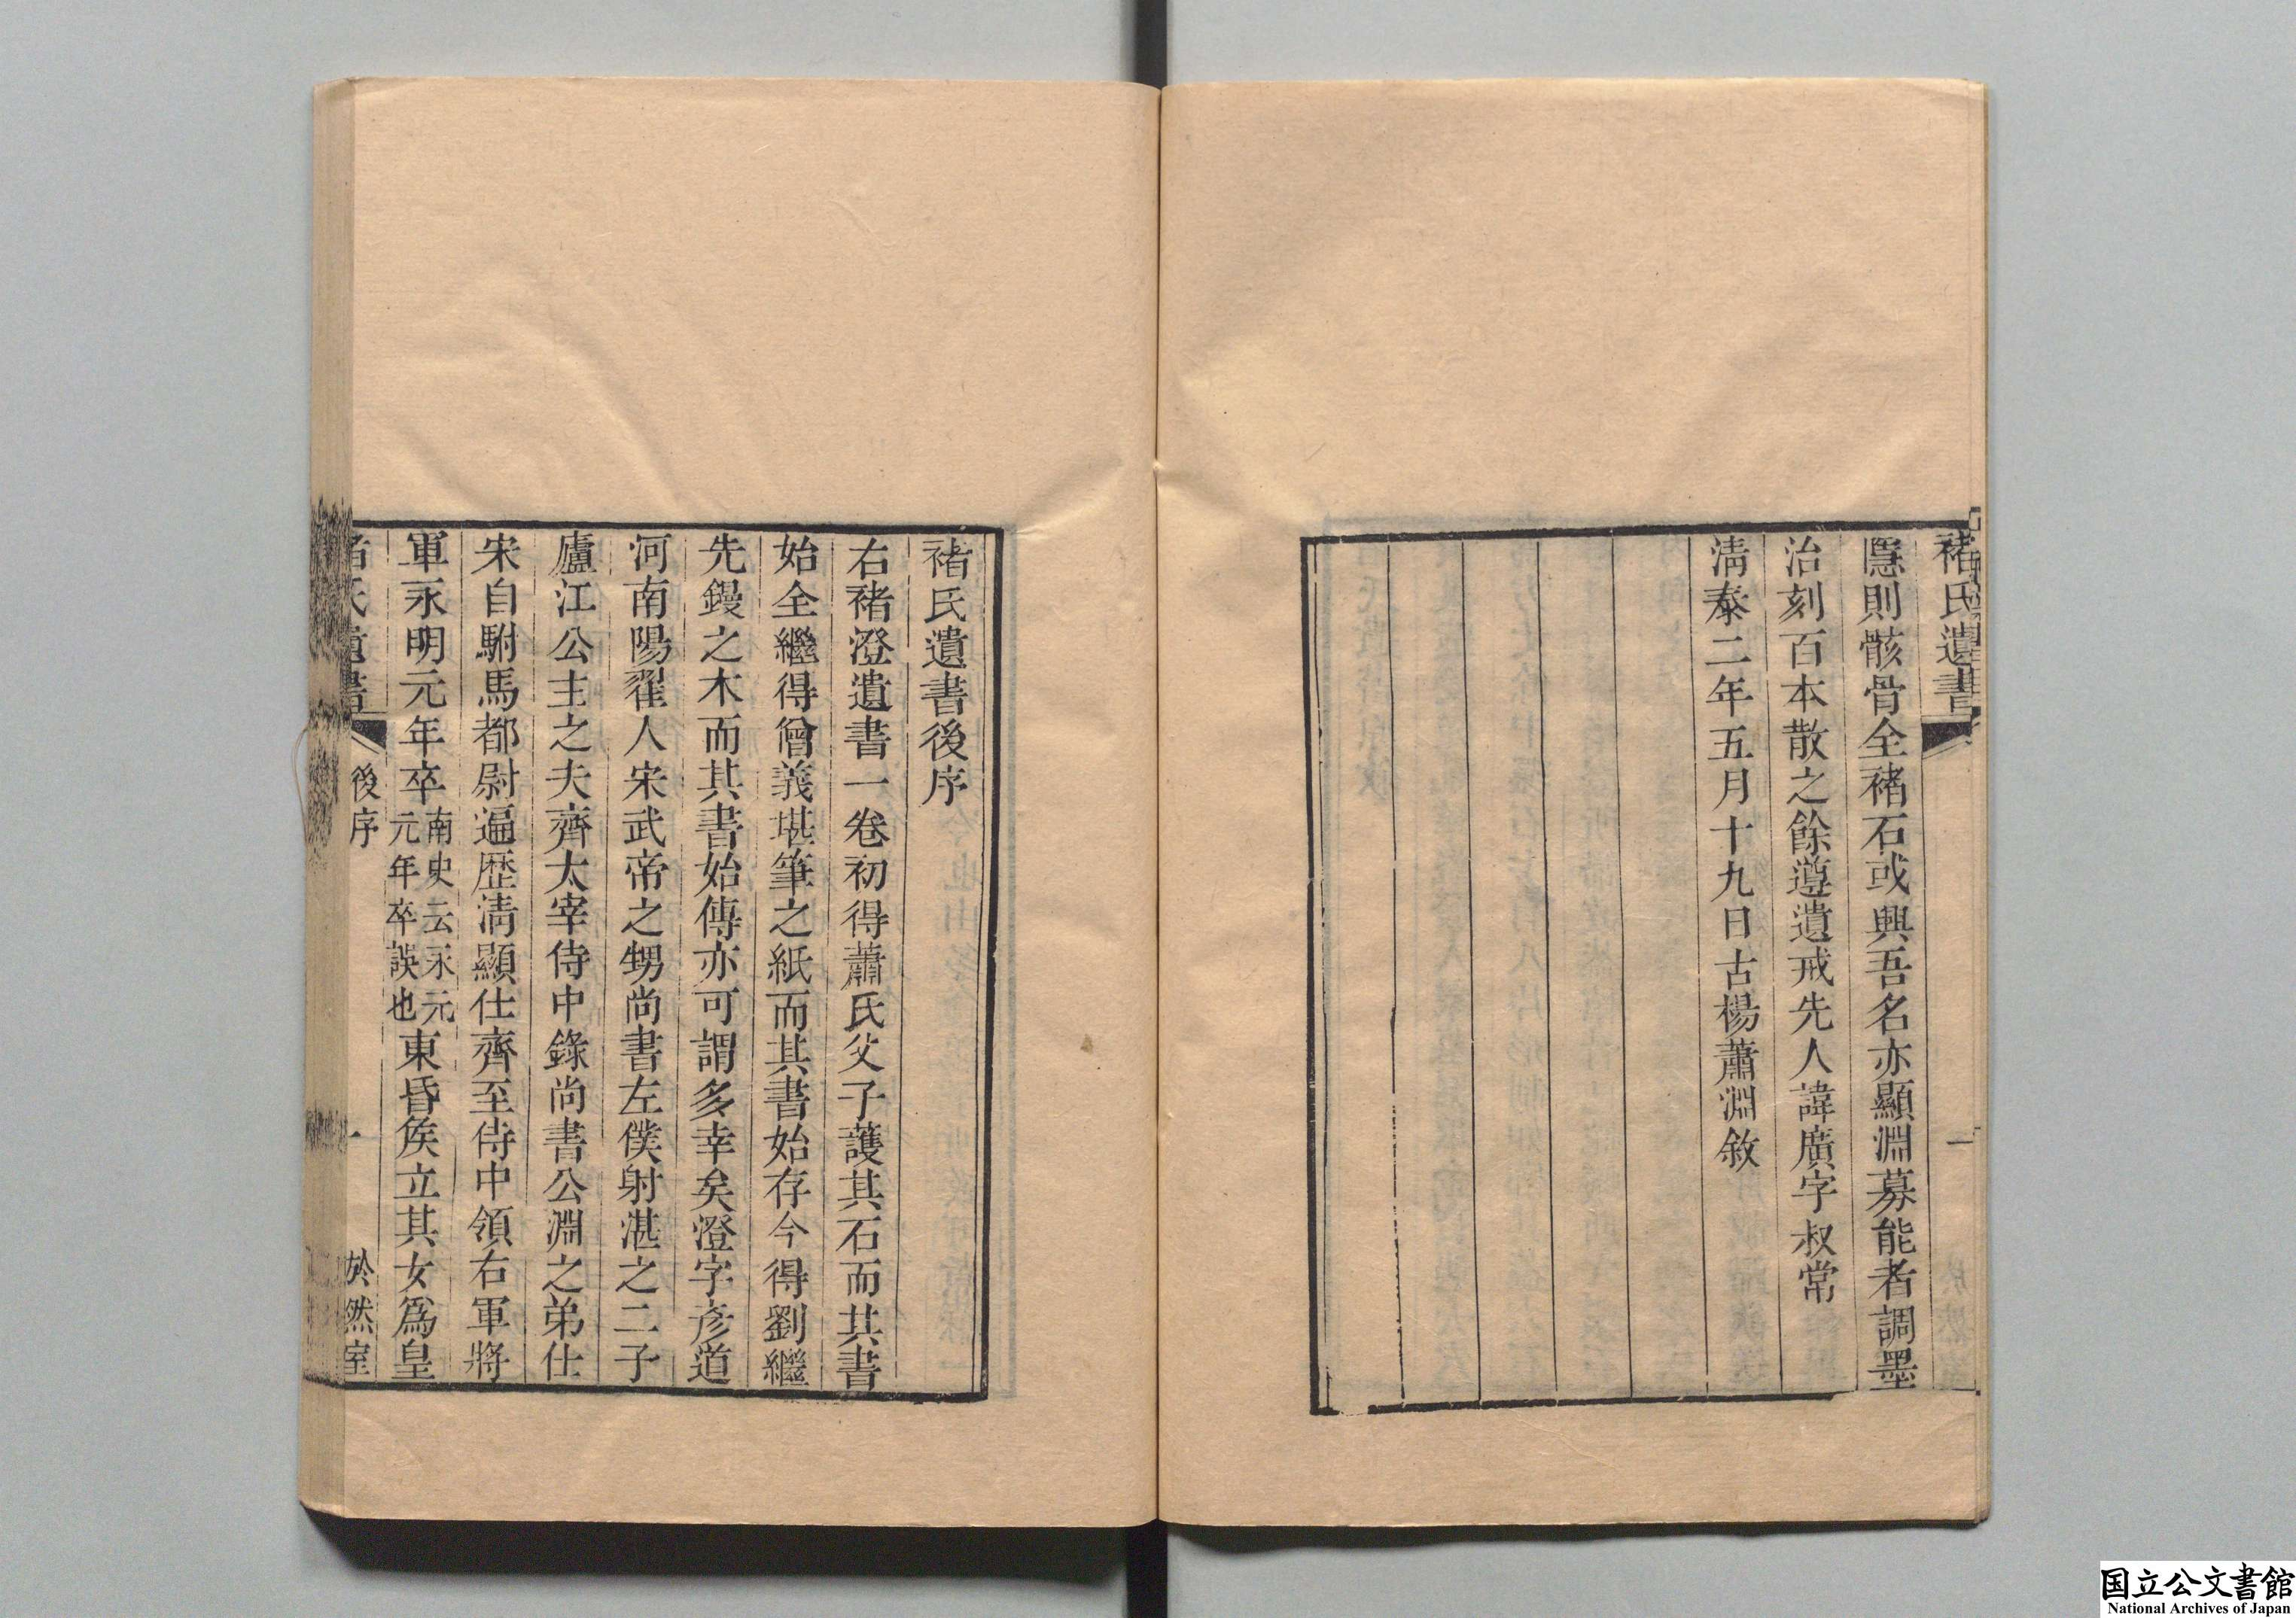 褚氏遺書
一
隱則骸骨全褚石或興吾名亦顯淵募能者調墨
治刻百本散之餘遵遺戒先人諱廣字叔常
淸泰二年五月十九日古楊蕭淵敘
褚氏遺書後序
右褚澄遺書一卷初得蕭氏父子護其石而其書
始全繼得僧義堪筆之紙而其書始存今得劉繼
先鏝之木而其書始傳亦可謂多幸矣澄字彥道
河南陽翟人宋武帝之甥尚書左僕射湛之二子
廬江公主之夫齊太宰侍中錄尚書公淵之弟仕
宋自駙馬都尉遍歷淸顯仕齊至侍中領右軍將
軍永明元年卒南史云永元元年卒誤也東昏侯立其女爲皇
褚氏遺書
後序
一
於然室
国立公文書館
National Archives of Japan